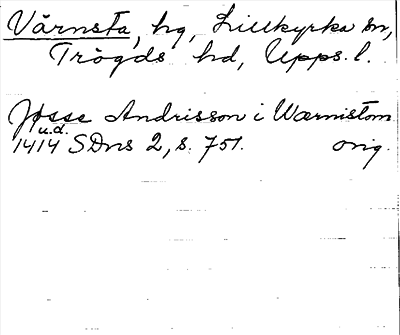 Värnsta, hg, Lillkyrka sn,
Trögds hd, Upps. l.
Jösse Andrisson i Wærnistom
u.d.
1414 SDns 2, s. 751. orig.